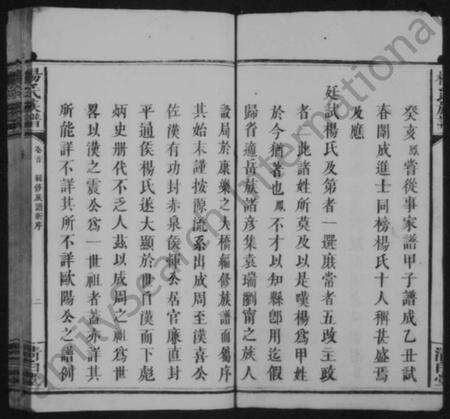 癸亥鳳嘗從事家譜甲子譜成乙丑試
春闈成進士同榜楊氏十人稱甚盛焉
及應
廷試楊氏及第者一選庶常者五改主政
者一此諸姓所莫及以是嘆楊爲甲姓
於今猶者也鳳不才以知縣即用迄假
歸省適岳族諸彥集袁瑞劉甯之族人
設局於康樂之大橋編修族譜而屬序
其始末謹按源流系出成周至漢喜公
佐漢有功封赤泉侯 公居官廉直封
平通侯楊氏遂大顯於世自漢而下彪
炳史册代不乏人茲以成周之 祖爲世
畧以漢之震公爲一世祖者蓋亦詳其
所能詳不詳其所不詳歐陽公之譜例
楊氏族譜
卷首 編修族譜新序
二
清白堂
FamilySearch International